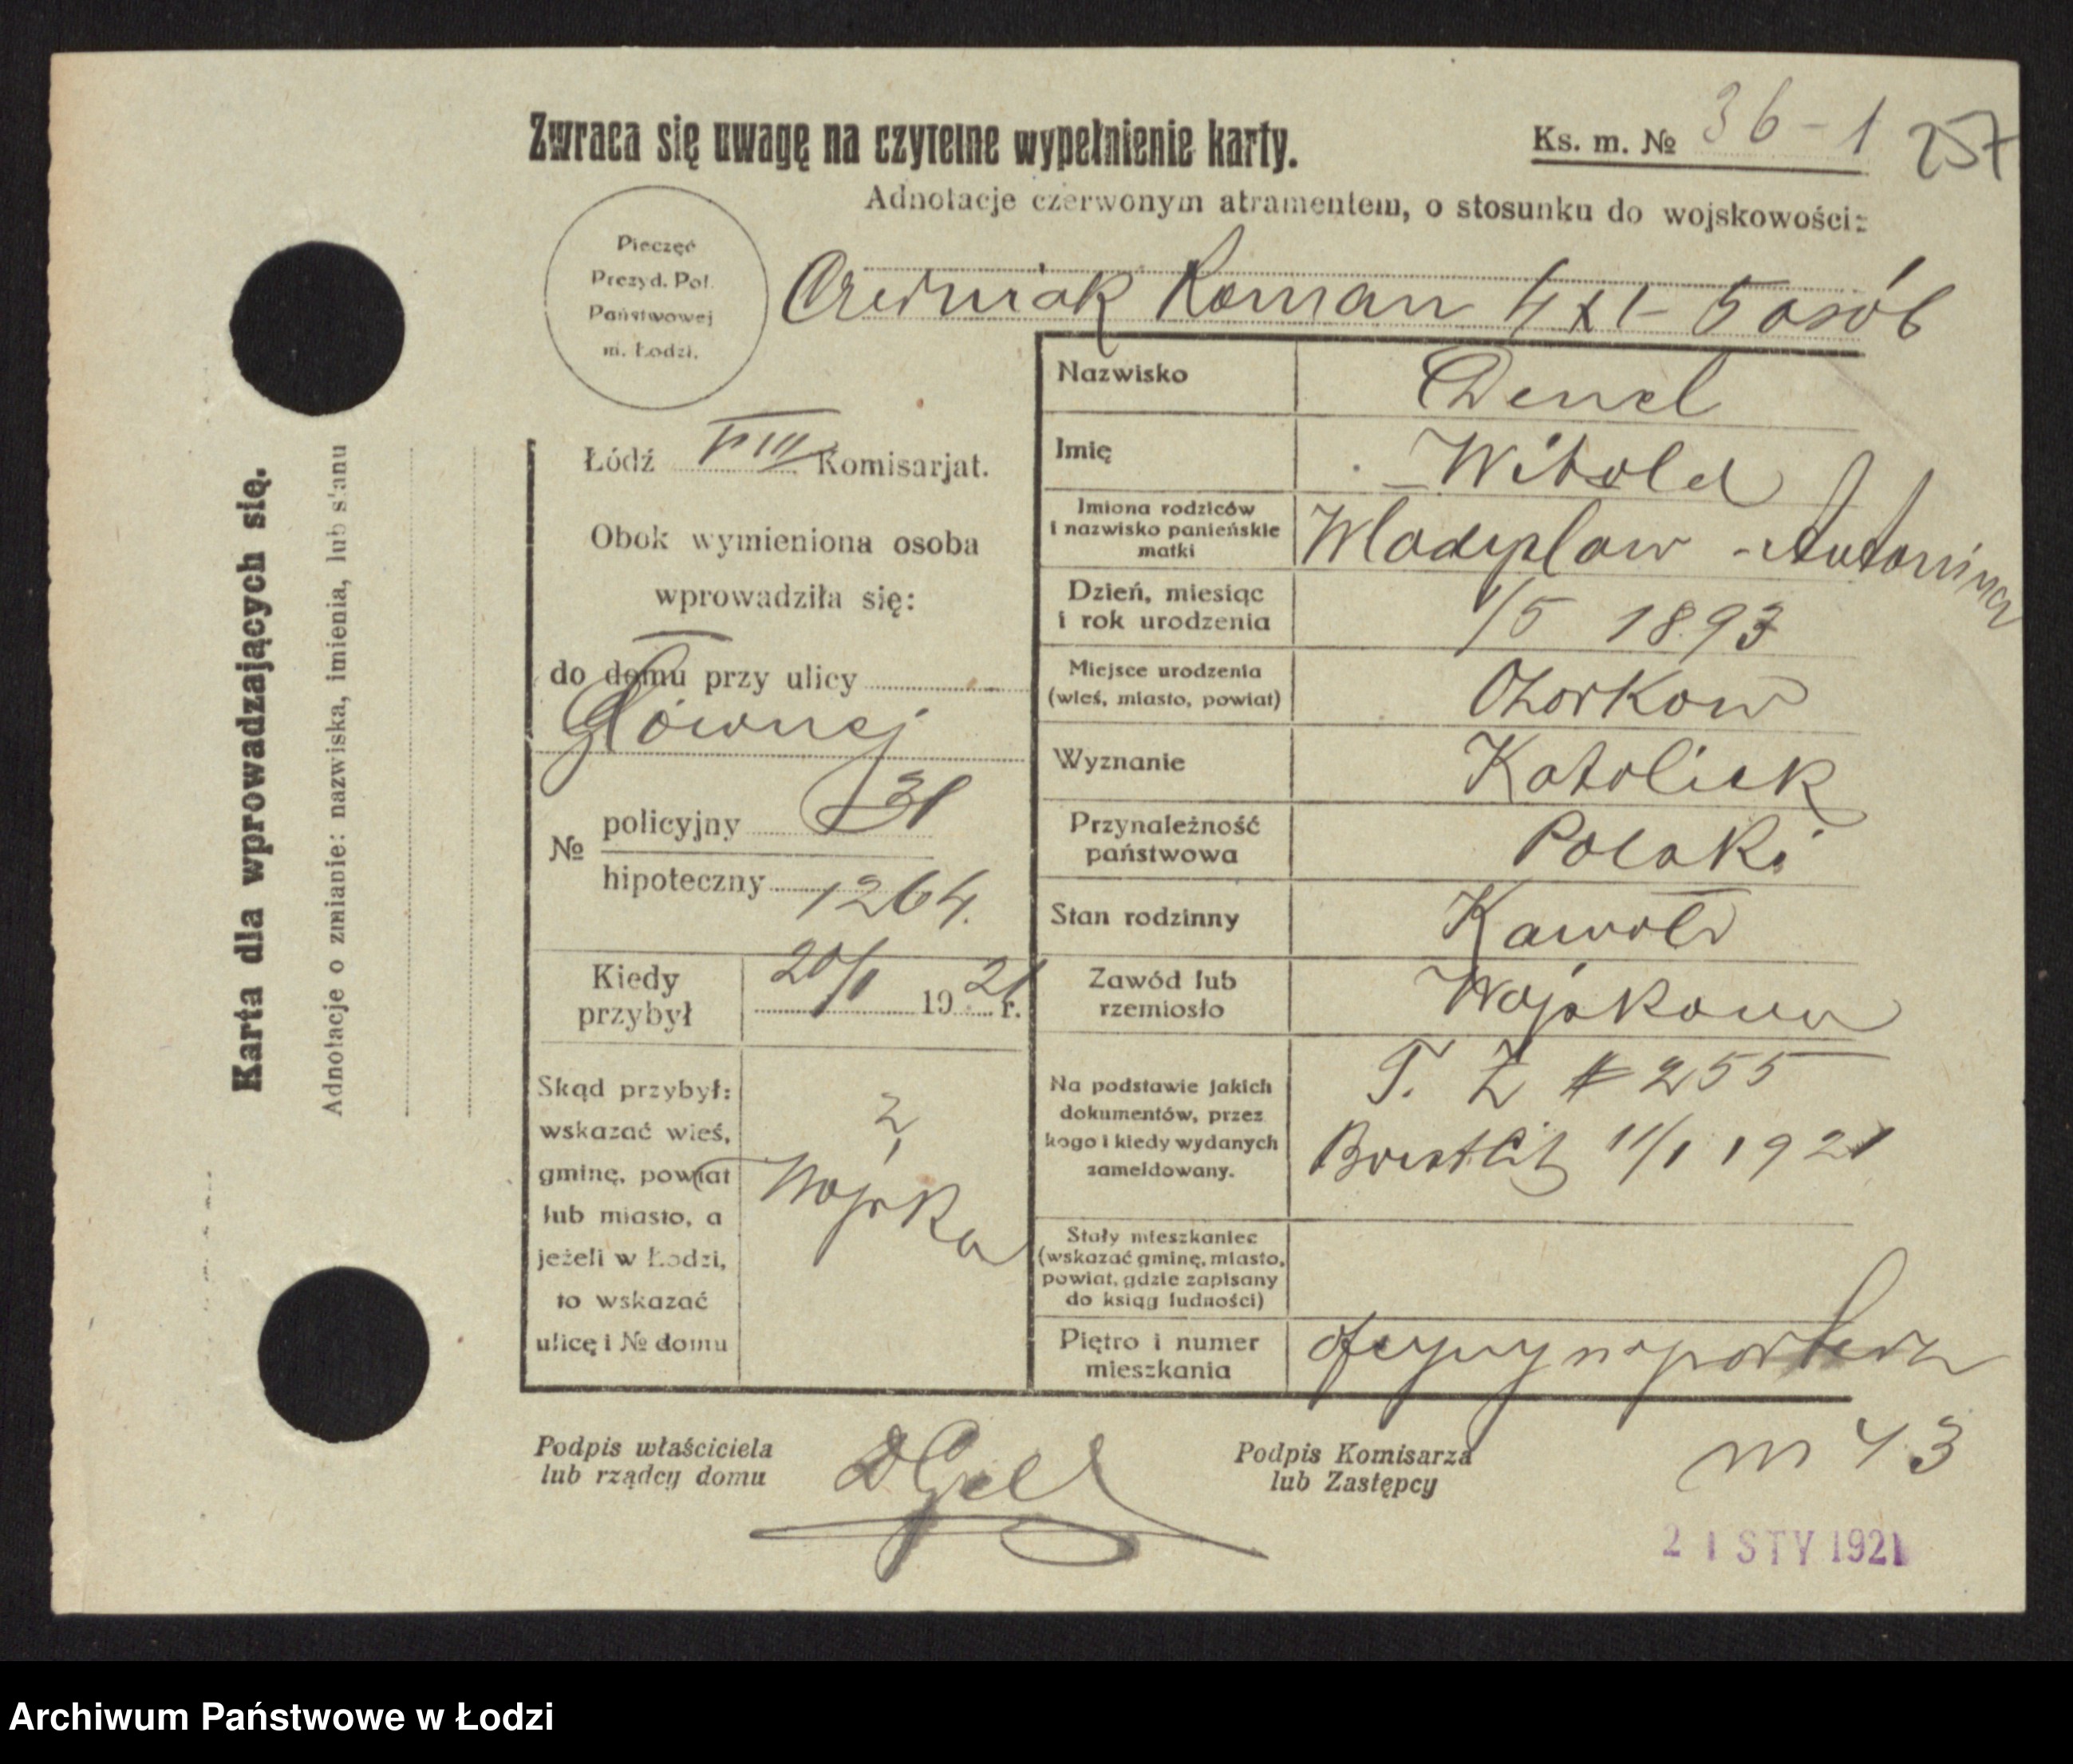 Zwraca się uwagę na czytelne wypełnienie karty.
Ks. m. № 36-1 257
Adnotacje czerwonym atramentem, o stosunku do wojskowości:
Pieczęć
Prezyd. Pol.
Państwowej
m. Łodzi.
Roman 4 x 1 - 5 osób
Karta dla wprowadzających się.
Adnotacje o zmianie: nazwiska, imienia, lub stanu
Łódź VIII Komisarjat.
Obok wymieniona osoba
wprowadziła się:
do domu przy ulicy
Głównej
№ policyjny 31
hipoteczny 1264.
Kiedy przybył 20/1 1921 r.
Skąd przybył:
wskazać wieś,
gminę, powiat
lub miasto, a
jeżeli w Łodzi,
to wskazać
ulicę i № domu
z Wojska
Nazwisko Denel
Imię Witold
Imiona rodziców
i nazwisko panieńskie
matki
Władysław - Antonina
Dzień, miesiąc
i rok urodzenia
1/5 1893
Miejsce urodzenia
(wieś, miasto, powiat)
Ozorkow
Wyznanie Katolick
Przynależność
państwowa
Polski
Stan rodzinny Kawaler
Zawód lub
rzemiosło
Wojskowy
Na podstawie jakich
dokumentów, przez
kogo i kiedy wydanych
zameldowany.
T. Z # 255
11/1 1921
Stały mieszkaniec
(wskazać gminę, miasto,
powiat, gdzie zapisany
do ksiąg ludności)
Piętro i numer
mieszkania
oficyny parter
m 43
Podpis właściciela
lub rządcy domu
Podpis Komisarza
lub Zastępcy
21 STY 1921
Archiwum Państwowe w Łodzi